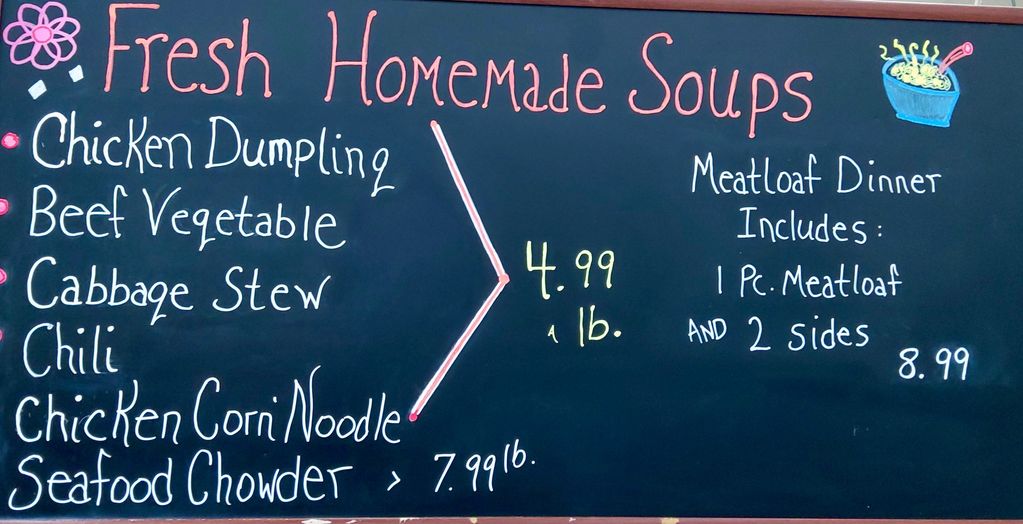 Fresh Homemade Soups
Chicken Dumpling
Beef Vegetable
Cabbage Stew
Chili
Chicken Corn Noodle
4.99
lb.
Seafood Chowder > 7.99 lb.
Meatloaf Dinner
Includes:
1 Pc. Meatloaf
AND 2 sides
8.99